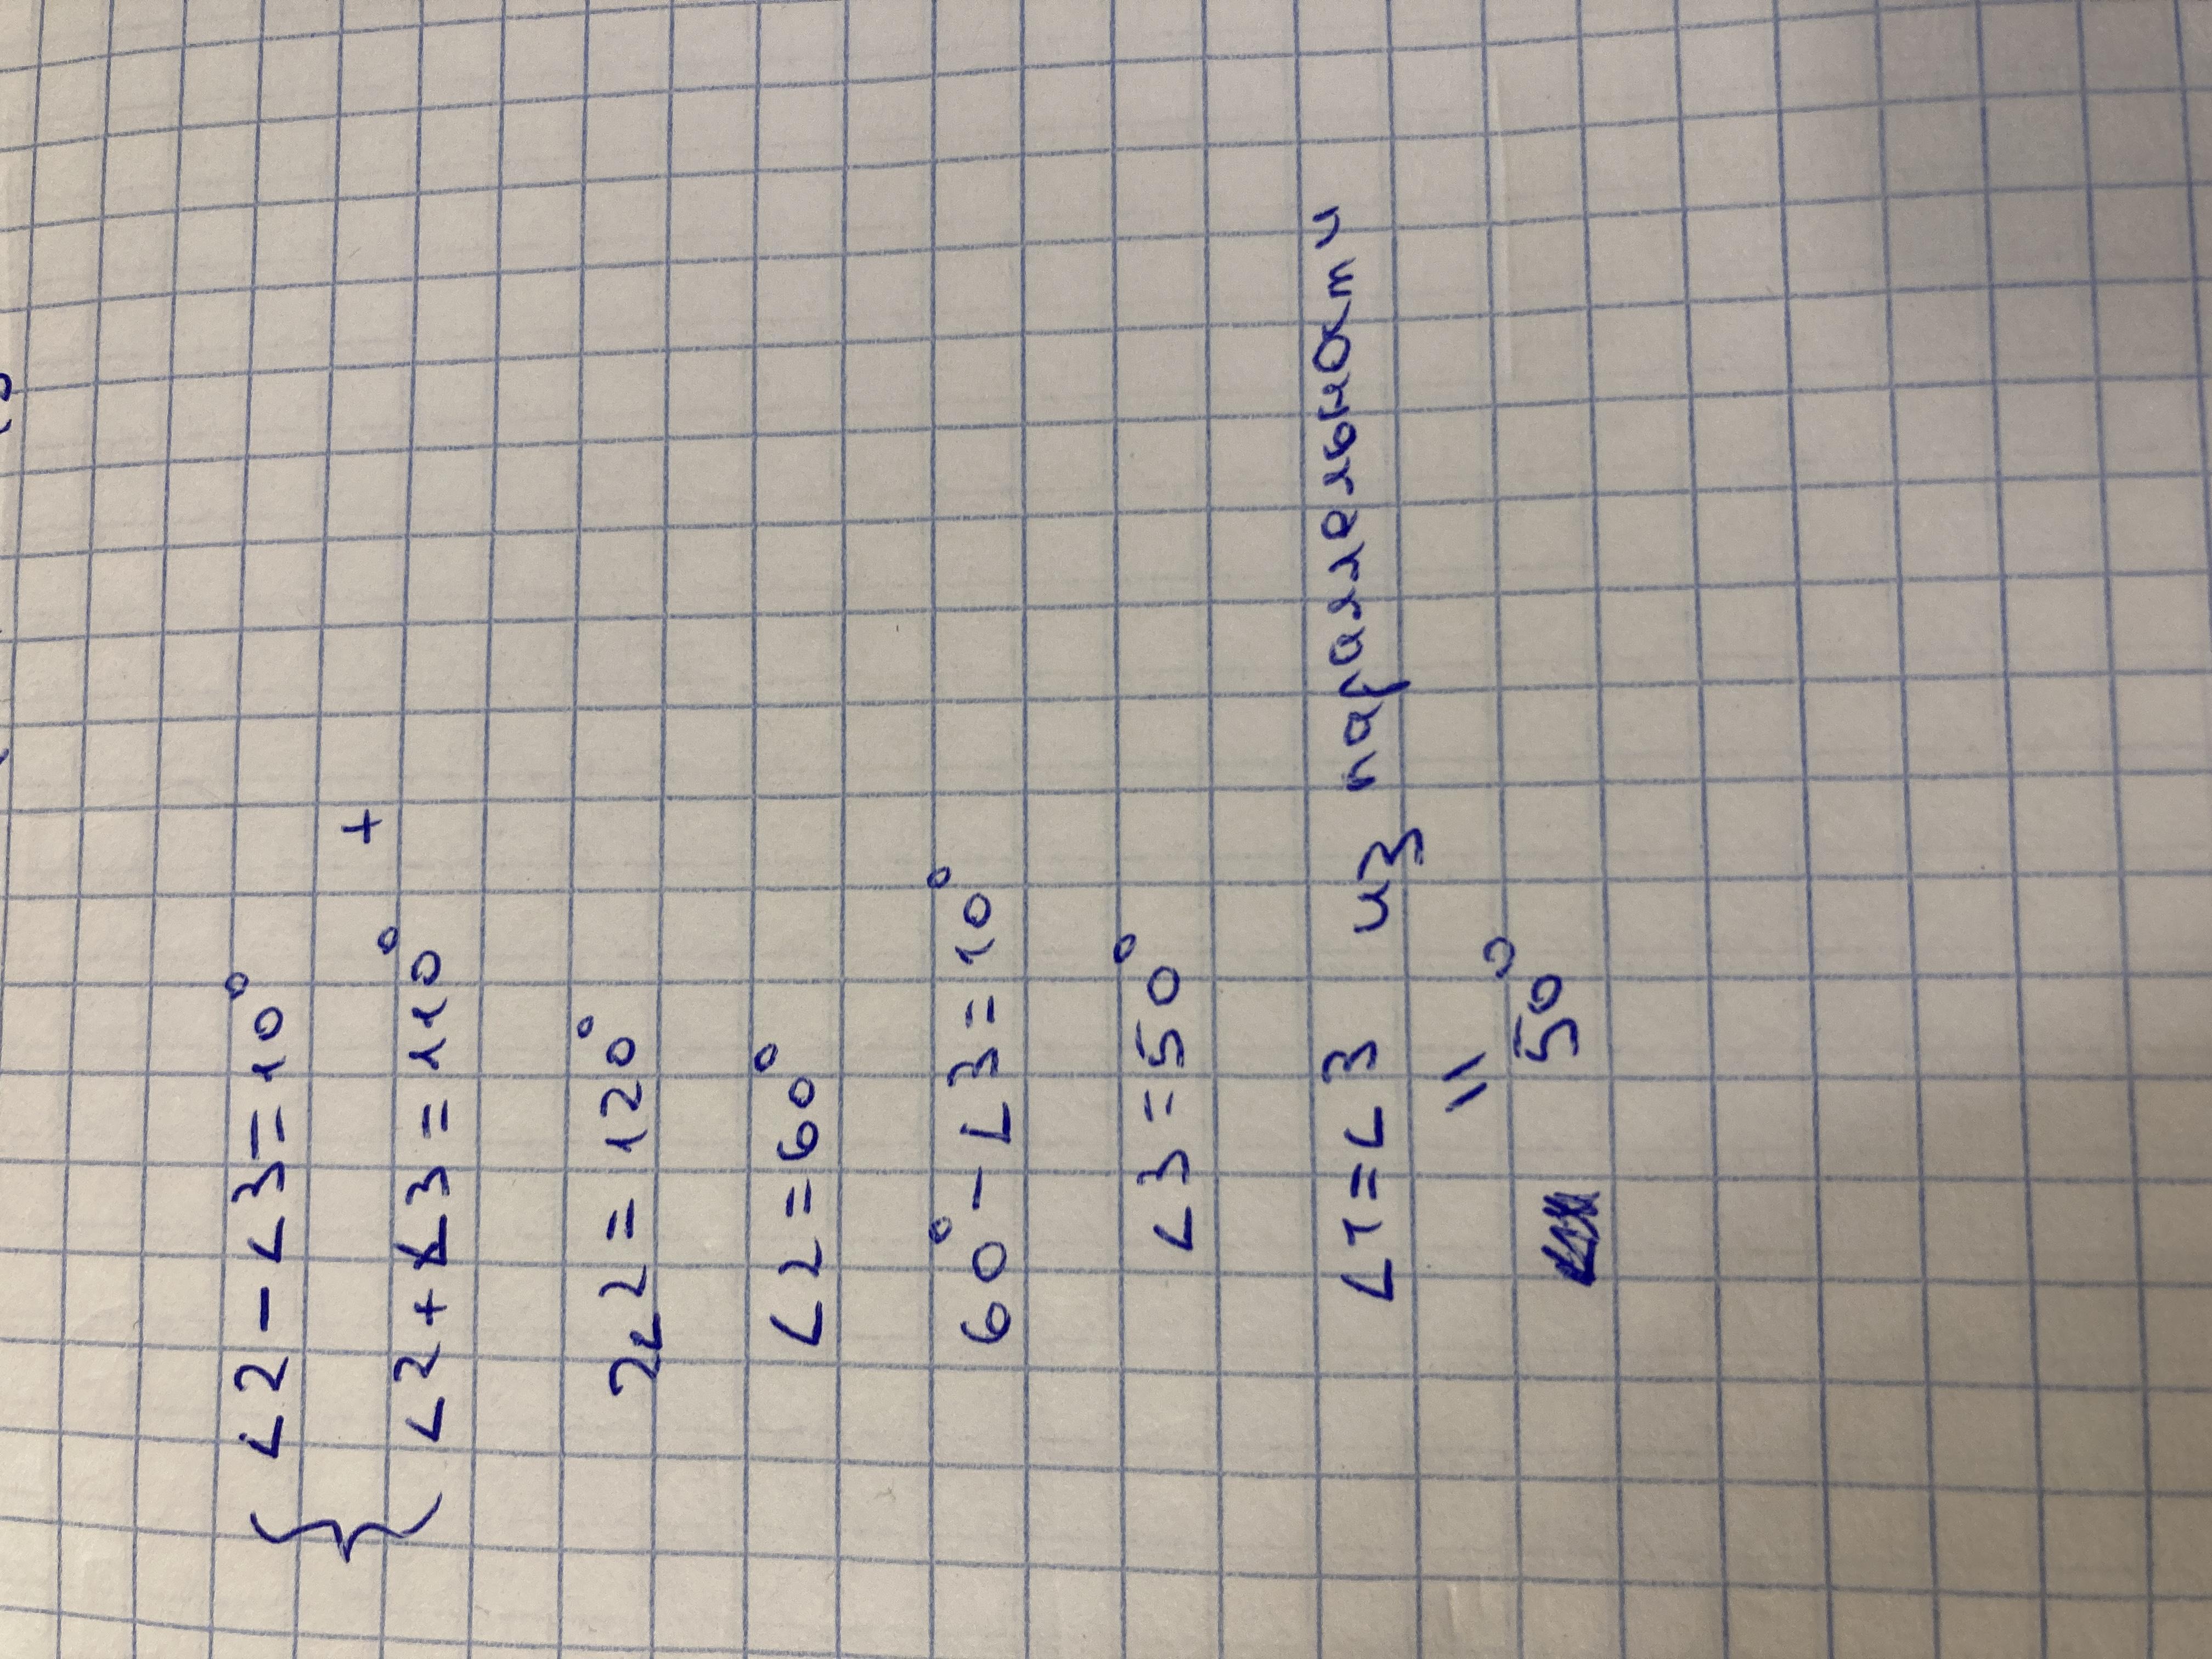 { ∠2 - ∠3 = 10°
∠2 + ∠3 = 110° +
2∠2 = 120°
∠2 = 60°
60° - ∠3 = 10°
∠3 = 50°
∠1 = ∠3 из параллельности
=
50°